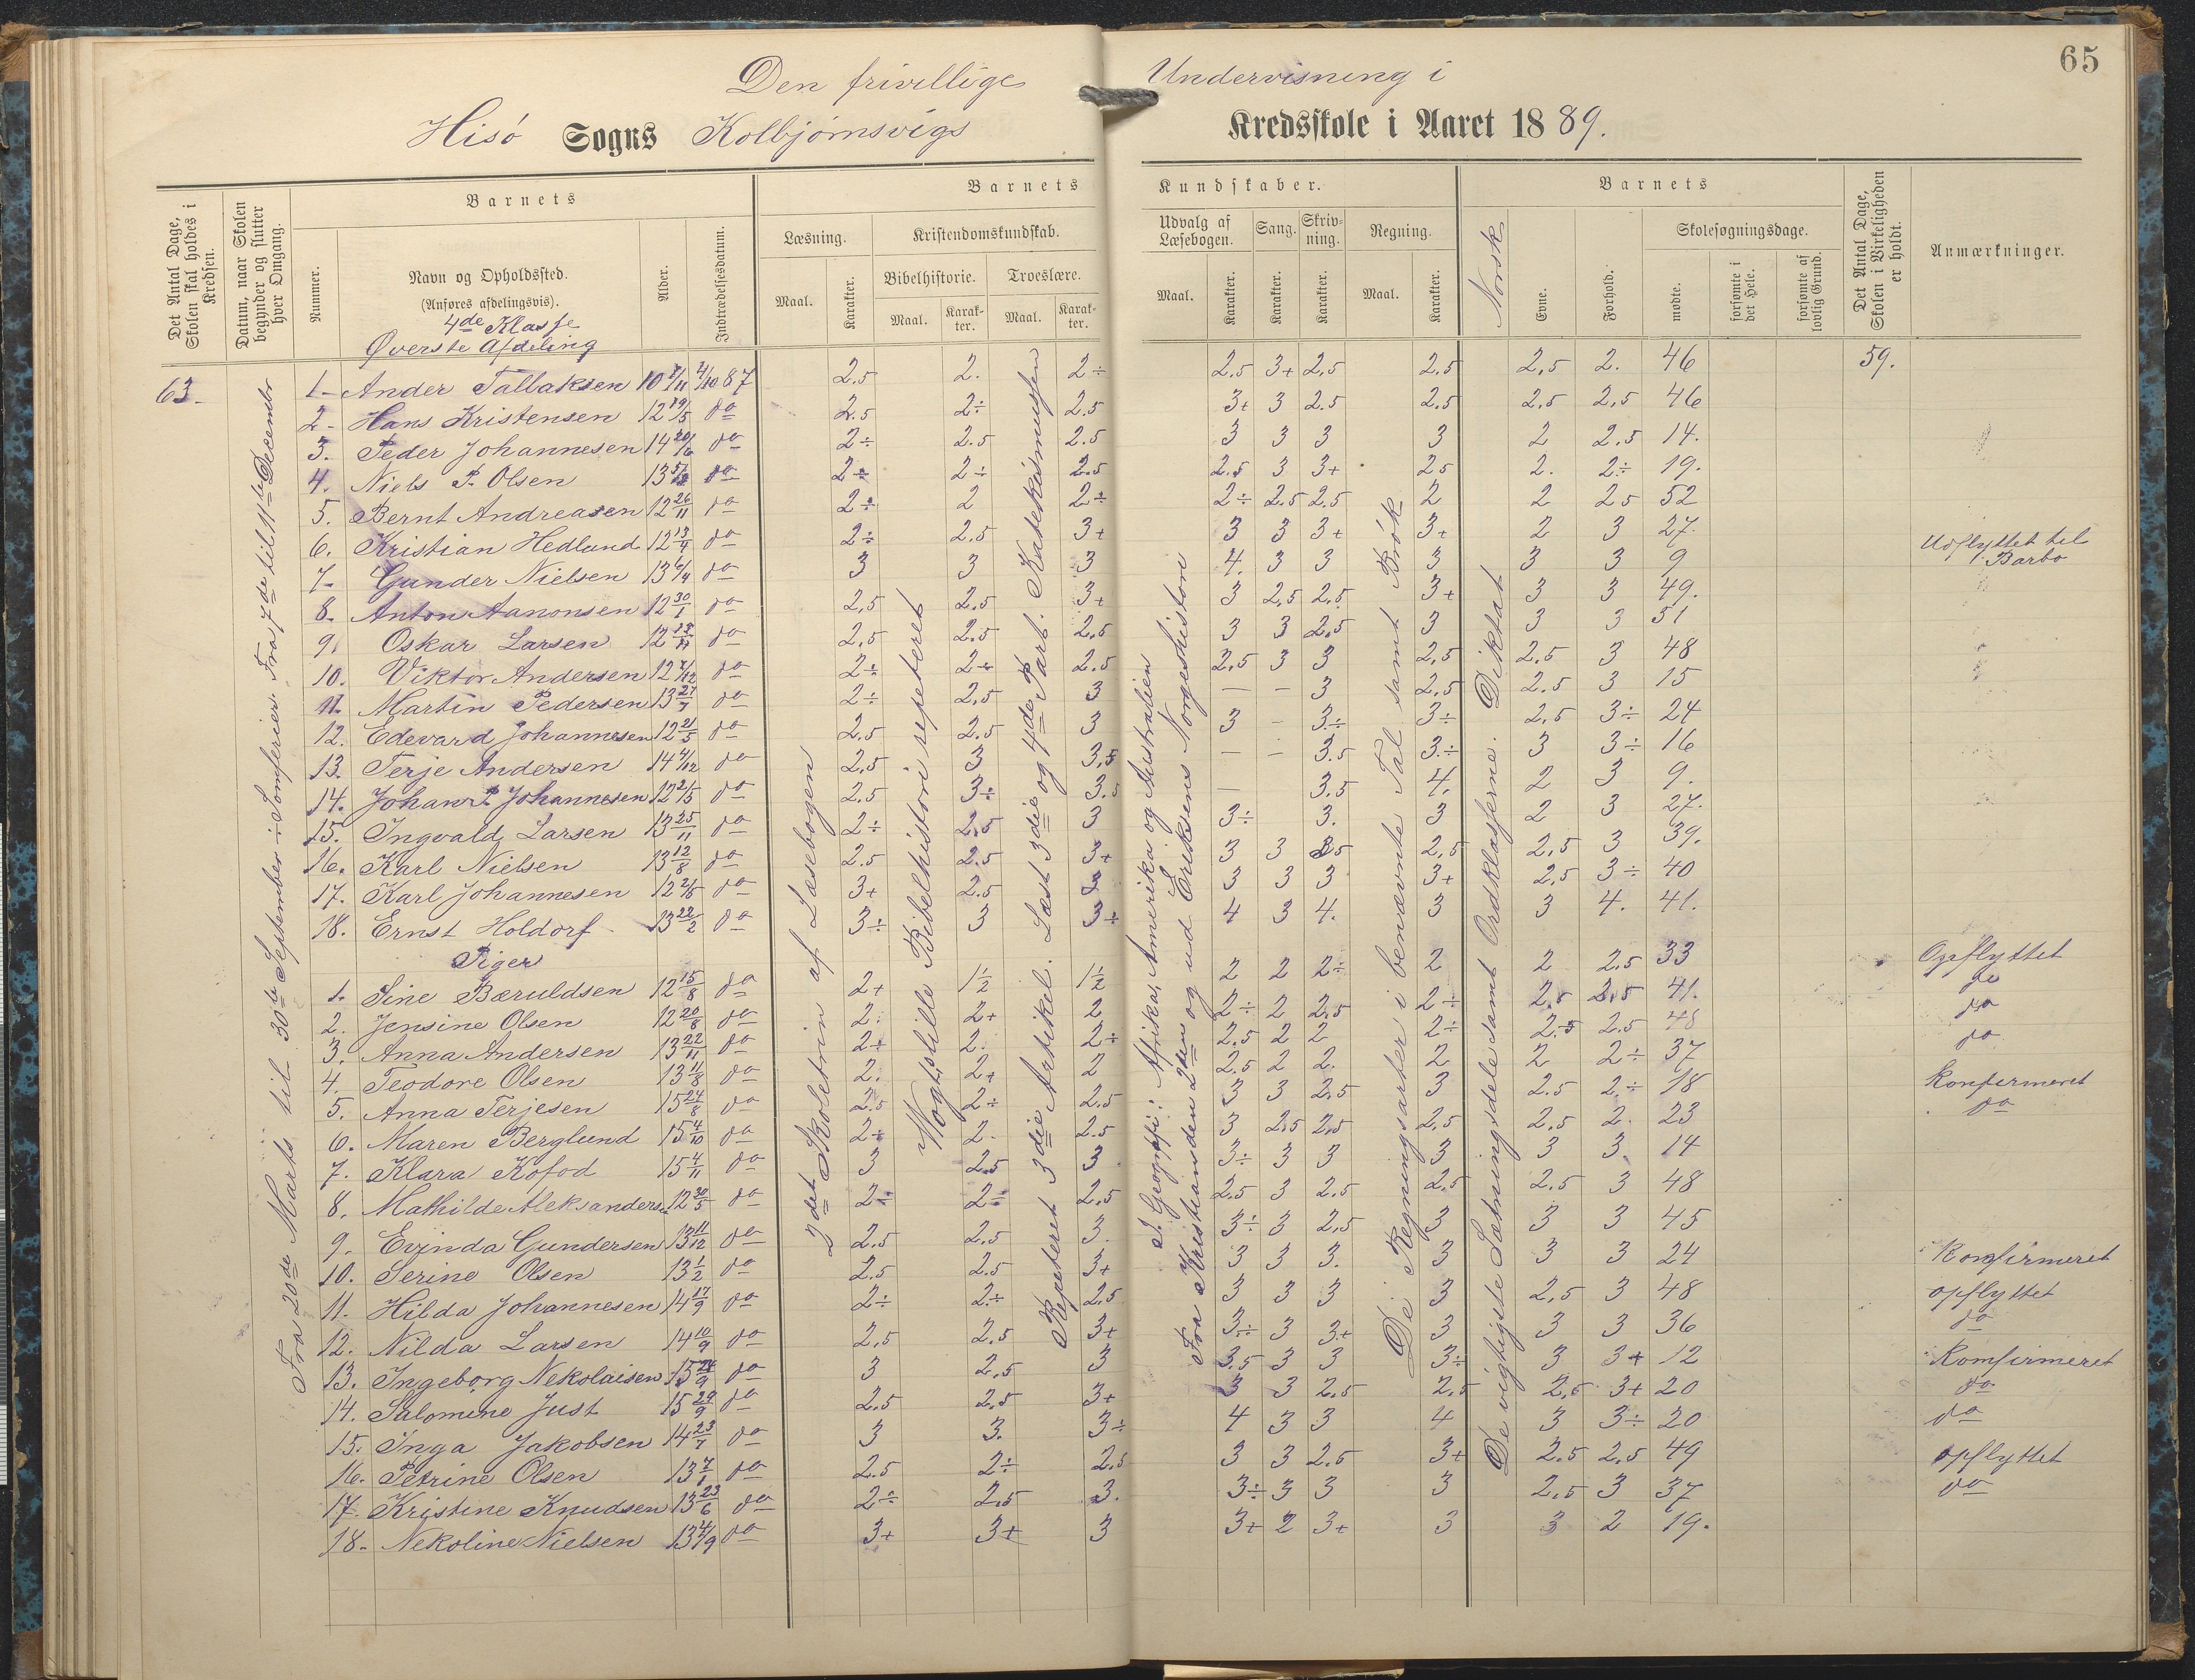 65
Den frivillige Undervisning i
Hisø Sogns Kolbjørnsvigs Kredsskole i Aaret 1889.
Det Antal Dage, Skolen skal holdes i Kredsen.
Datum, naar Skolen begynder og slutter hver Omgang.
Barnets
Nummer.
Navn og Opholdssted.
(Anføres afdelingsvis).
4de Klasse
Øverste Afdeling
Alder.
Indtrædelsesdatum.
Barnets Kundskaber.
Læsning.
Maal.
Karakter.
Kristendomskundskab.
Bibelhistorie.
Maal.
Karakter.
Troeslære.
Maal.
Karakter.
Udvalg af Læsebogen.
Maal.
Karakter.
Sang.
Karakter.
Skrivning.
Karakter.
Regning.
Maal.
Karakter.
Norsk
Barnets
Evne.
Forhold.
Skolesøgningsdage.
mødte.
forsømte i det Hele.
forsømte af lovlig Grund.
Det Antal Dage, Skolen i Virkeligheden er holdt.
Anmærkninger.
63.
Fra 20de Marts til 30te September ÷ Somferier. Fra 7de til 11te December
2det Skoletrin af Læsebogen
Vogtslille Bibelhistorie repeteret
Repeteret 3die Artikel. Læst 3die og 4de Part. Katekismusen
I Geografi: Afrika, Amerika og Australien
Fra Kristian den 2den og ud Eriksens Norgeshistorie
De 4 Regningsarter i benævnte Tal samt Brøk
De vigtigste Sætningsdele samt Ordklasserne. Diktat
1- Ander Tallaksen 10 4/10 87 2.5 2. 2÷ 2.5 3+ 2.5 2.5 2,5 2. 46 59.
2- Hans Kristensen 12 19/5 do 2.5 2÷ 2.5 3+ 3 2.5 2.5 2.5 2,5 46
3. Peder Johannesen 14 20/6 do 2÷ 2.5 2.5 3 3 3 3 2 2.5 14.
4. Niels P. Olsen 13 5/12 do 2÷ 2÷ 2.5 2.5 3 3+ 25 2. 2÷ 19.
5. Bernt Andreasen 12 26/11 do 2÷ 2 2÷ 2÷ 2.5 2.5 2 2 25 52
6. Kristian Hedlund 12 13/4 do 2÷ 2.5 3+ 3 3 3+ 3+ 2 3 27.
7- Gunder Nielsen 13 6/4 do 3 3 3 4. 3 3 3 3 3 9 Udflyttet til Barbo
8. Anton Aanonsen 12 30/1 do 2,5 2.5 3+ 3 2,5 2.5 3+ 3 3 49.
9. Oskar Larsen 12 do 2.5 2.5 2.5 3 3 2.5 3 3 3 51
10. Viktor Andersen 12 7/12 do 2÷ 2÷ 2.5 2,5 3 3 2,5 2.5 3 48
11. Martin Pedersen 13 27/7 do 2÷ 2,5 3 — – 3 2,5 2.5 3 15
12. Edevard Johannesen 12 21/5 do 2.5 2.5 3 3 – 3÷ 3÷ 2.5 3÷ 24
13. Terje Andersen 14 4/12 do 2.5 3 3,5 — – 3.5 3÷ 3 3÷ 16
14. Johan P. Johannesen 12 2/5 do 2.5 3÷ 3.5 — 3.5 4. 2 3 9.
15. Ingvald Larsen 13 25/11 do 2÷ 2.5 3 3÷ 3. 3 2 3 27.
16. Karl Nielsen 13 12/8 do 2.5 2.5 3+ 3 3 3.5 2,5 2,5 3 39.
17. Karl Johannesen 12 2/5 do 3+ 2.5 3 3 3 3 3+ 2,5 3÷ 40
18. Ernst Holdorf 13 22/2 do 3÷ 3 3÷ 4 3 4. 3 3 4. 41.
Piger
1. Sine Bæruldsen 12 15/8 do 2+ 1½ 1½ 2 2 2÷ 2 2 2.5 33 Opflyttet
2. Jensine Olsen 12 20/8 do 2. 2+ 2 2÷ 2 2.5 2÷ 2.5 2.5 41. do
3. Anna Andersen 13 22/11 do 2÷ 2. 2÷ 2.5 2 2 2÷ 2.5 2.5 48 do
4. Teodore Olsen 13 11/8 do 2. 2+ 2 2.5 2 2. 2 2 2÷ 37 do
5. Anna Terjesen 15 24/8 do 2.5 2÷ 2.5 3 3 2.5 3 2.5 2÷ 18 Konfirmeret
6. Maren Berglund 15 4/10 do 2÷ 2. 2.5 3 2.5 2.5 2,5 2,5 2. 23 do
7. Klara Kofod 15 4/11 do 3 2.5 3 3÷ 3 3 3 3 3. 14
8. Mathilde Aleksanders 12 20/5 do 2÷ 2÷ 2.5 2.5 3 2.5 2.5 2.5 3 48
9. Evinda Gundersen 13 11/12 do 2.5 2.5 3. 3÷ 3 2.5 3 3 3 45
10. Serine Olsen 13 1/2 do 2.5 2.5 3+ 3 3 3. 3 3 3 24 Konfirmeret
11. Hilda Johannesen 14 17/9 do 2÷ 2÷ 2.5 3 3 3 3 2,5 3 48 opflyttet
12. Nilda Larsen 14 10/9 do 2.5 2.5 3+ 3÷ 3 3+ 3 3 3 36 do
13. Ingeborg Nekolaisen 15 24/9 do 3 2,5 3 3.5 3 3 3÷ 3 3+ 12 Komfirmeret
14. Salomine Just 15 29/9 do 2.5 2.5 3+ 3 3 2.5 2.5 2.5 3+ 20 do
15. Inga Jakobsen 14 23/7 do 3 3. 3÷ 4 3 3 4 3 3÷ 20 do
16. Petrine Olsen 13 7/1 do 2.5 2÷ 2.5 3 3 2.5 3+ 2.5 2,5 49 opflyttet
17. Kristine Knudsen 13 23/6 do 2÷ 2.5 3. 3÷ 3 3 3 2.5 3 37 do
18- Nekoline Nielsen 13 4/9 do 3+ 3+ 3 3+ 2 3+ 3 3 2 19.